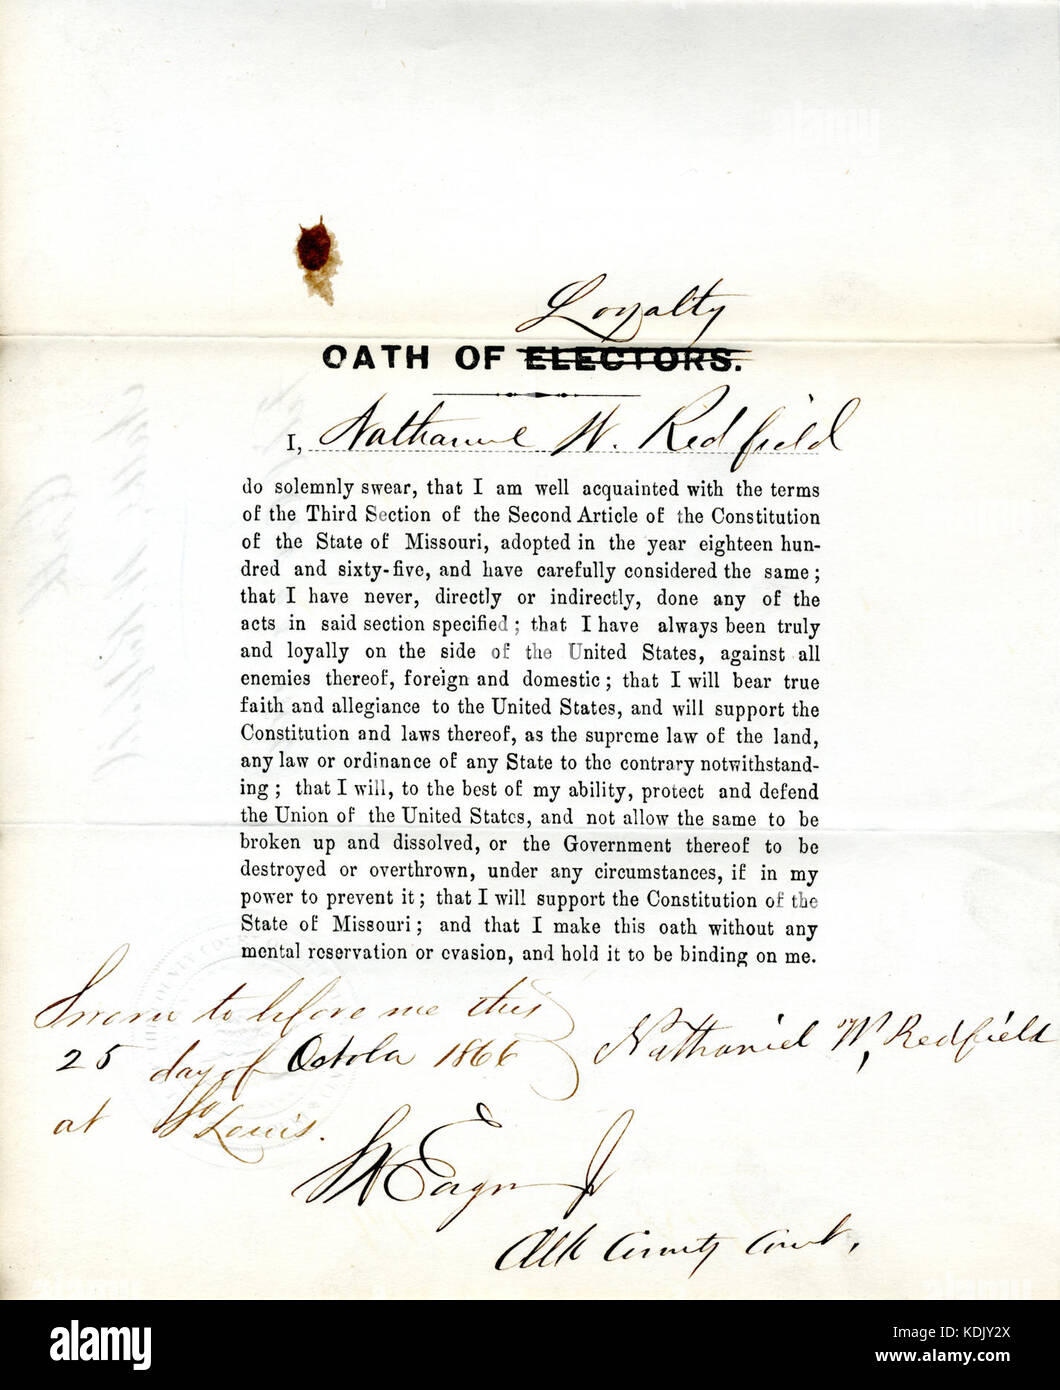 Loyalty
OATH OF ELECTORS.
I, Nathaniel W. Redfield
do solemnly swear, that I am well acquainted with the terms
of the Third Section of the Second Article of the Constitution
of the State of Missouri, adopted in the year eighteen hun-
dred and sixty-five, and have carefully considered the same;
that I have never, directly or indirectly, done any of the
acts in said section specified; that I have always been truly
and loyally on the side of the United States, against all
enemies thereof, foreign and domestic; that I will bear true
faith and allegiance to the United States, and will support the
Constitution and laws thereof, as the supreme law of the land,
any law or ordinance of any State to the contrary notwithstand-
ing; that I will, to the best of my ability, protect and defend
the Union of the United States, and not allow the same to be
broken up and dissolved, or the Government thereof to be
destroyed or overthrown, under any circumstances, if in my
power to prevent it; that I will support the Constitution of the
State of Missouri; and that I make this oath without any
mental reservation or evasion, and hold it to be binding on me.
Sworn to before me this
25 day of October 1866
at St Louis.
Nathaniel W. Redfield
Clk County Court.
alamy
Image ID: KDJY2X
www.alamy.com